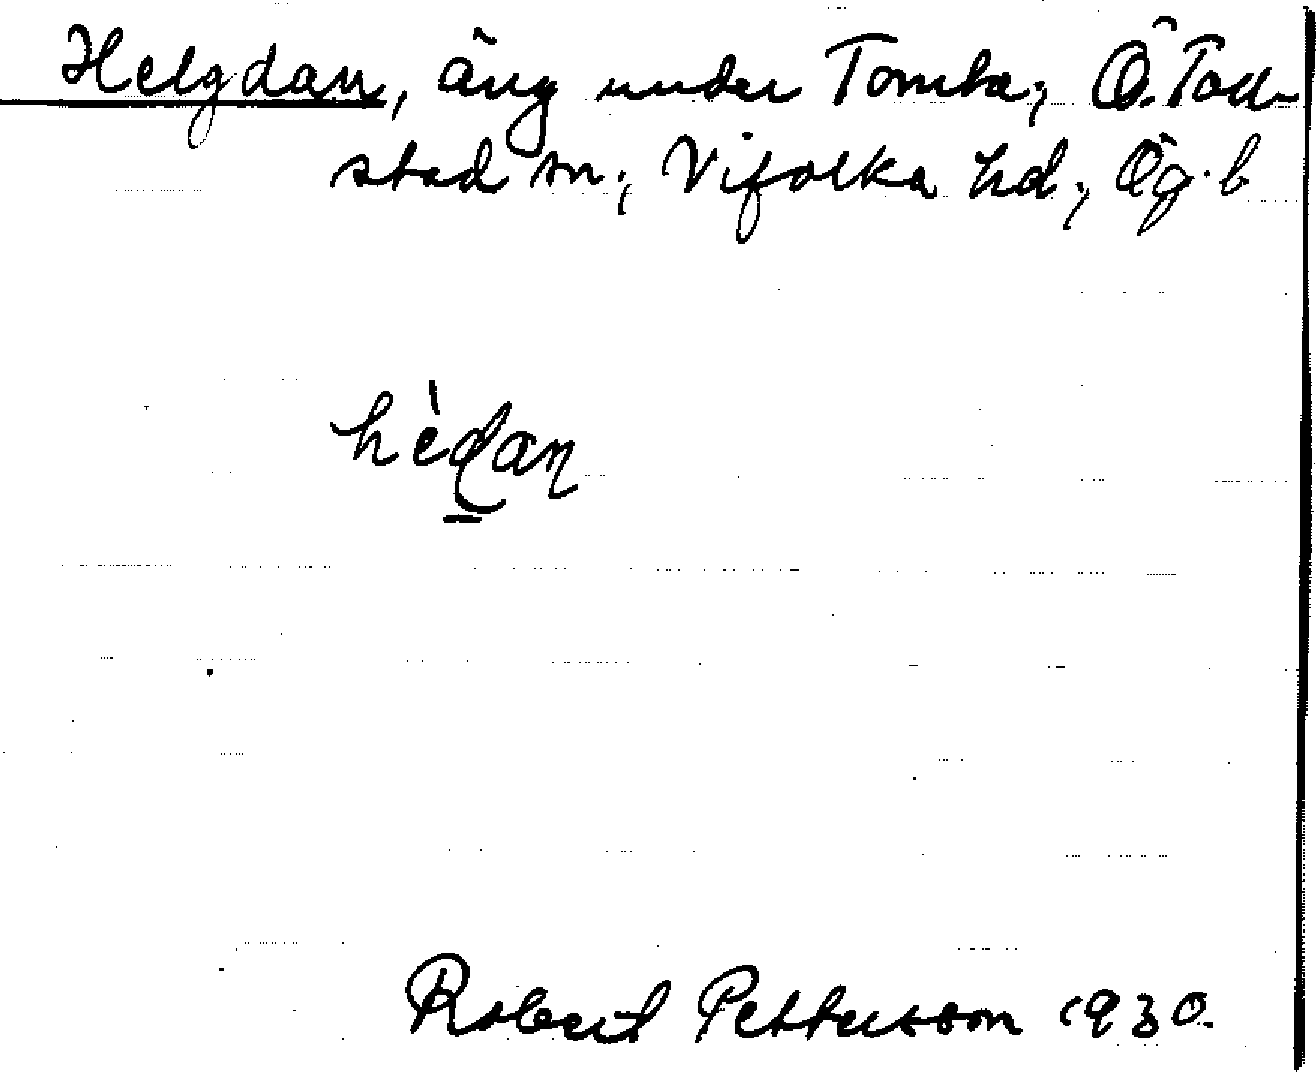 Helgdan, äng under Tomta, Ö. Tod-
stad sn; Vifolka hd, Ög. l
hèdan
Robert Pettersson 1930.